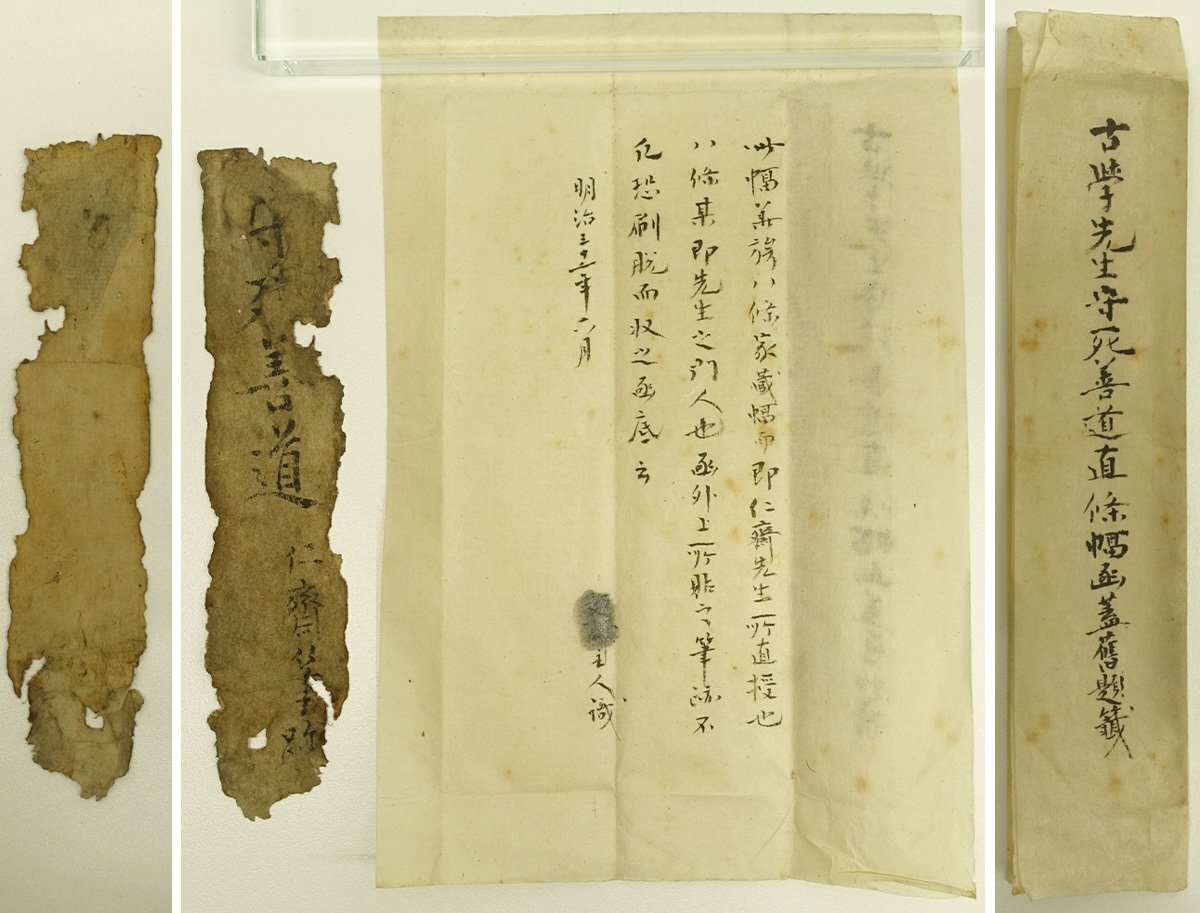 守死善道
仁齋 跡
此幅 八條家藏幅而即仁齋先生所直授也
八條某即先生之門人也函外上所貼之筆跡不
凡恐剝脫而收之函底云
明治三十二年 月
主人識
古學先生守死善道直條幅函蓋舊題籤